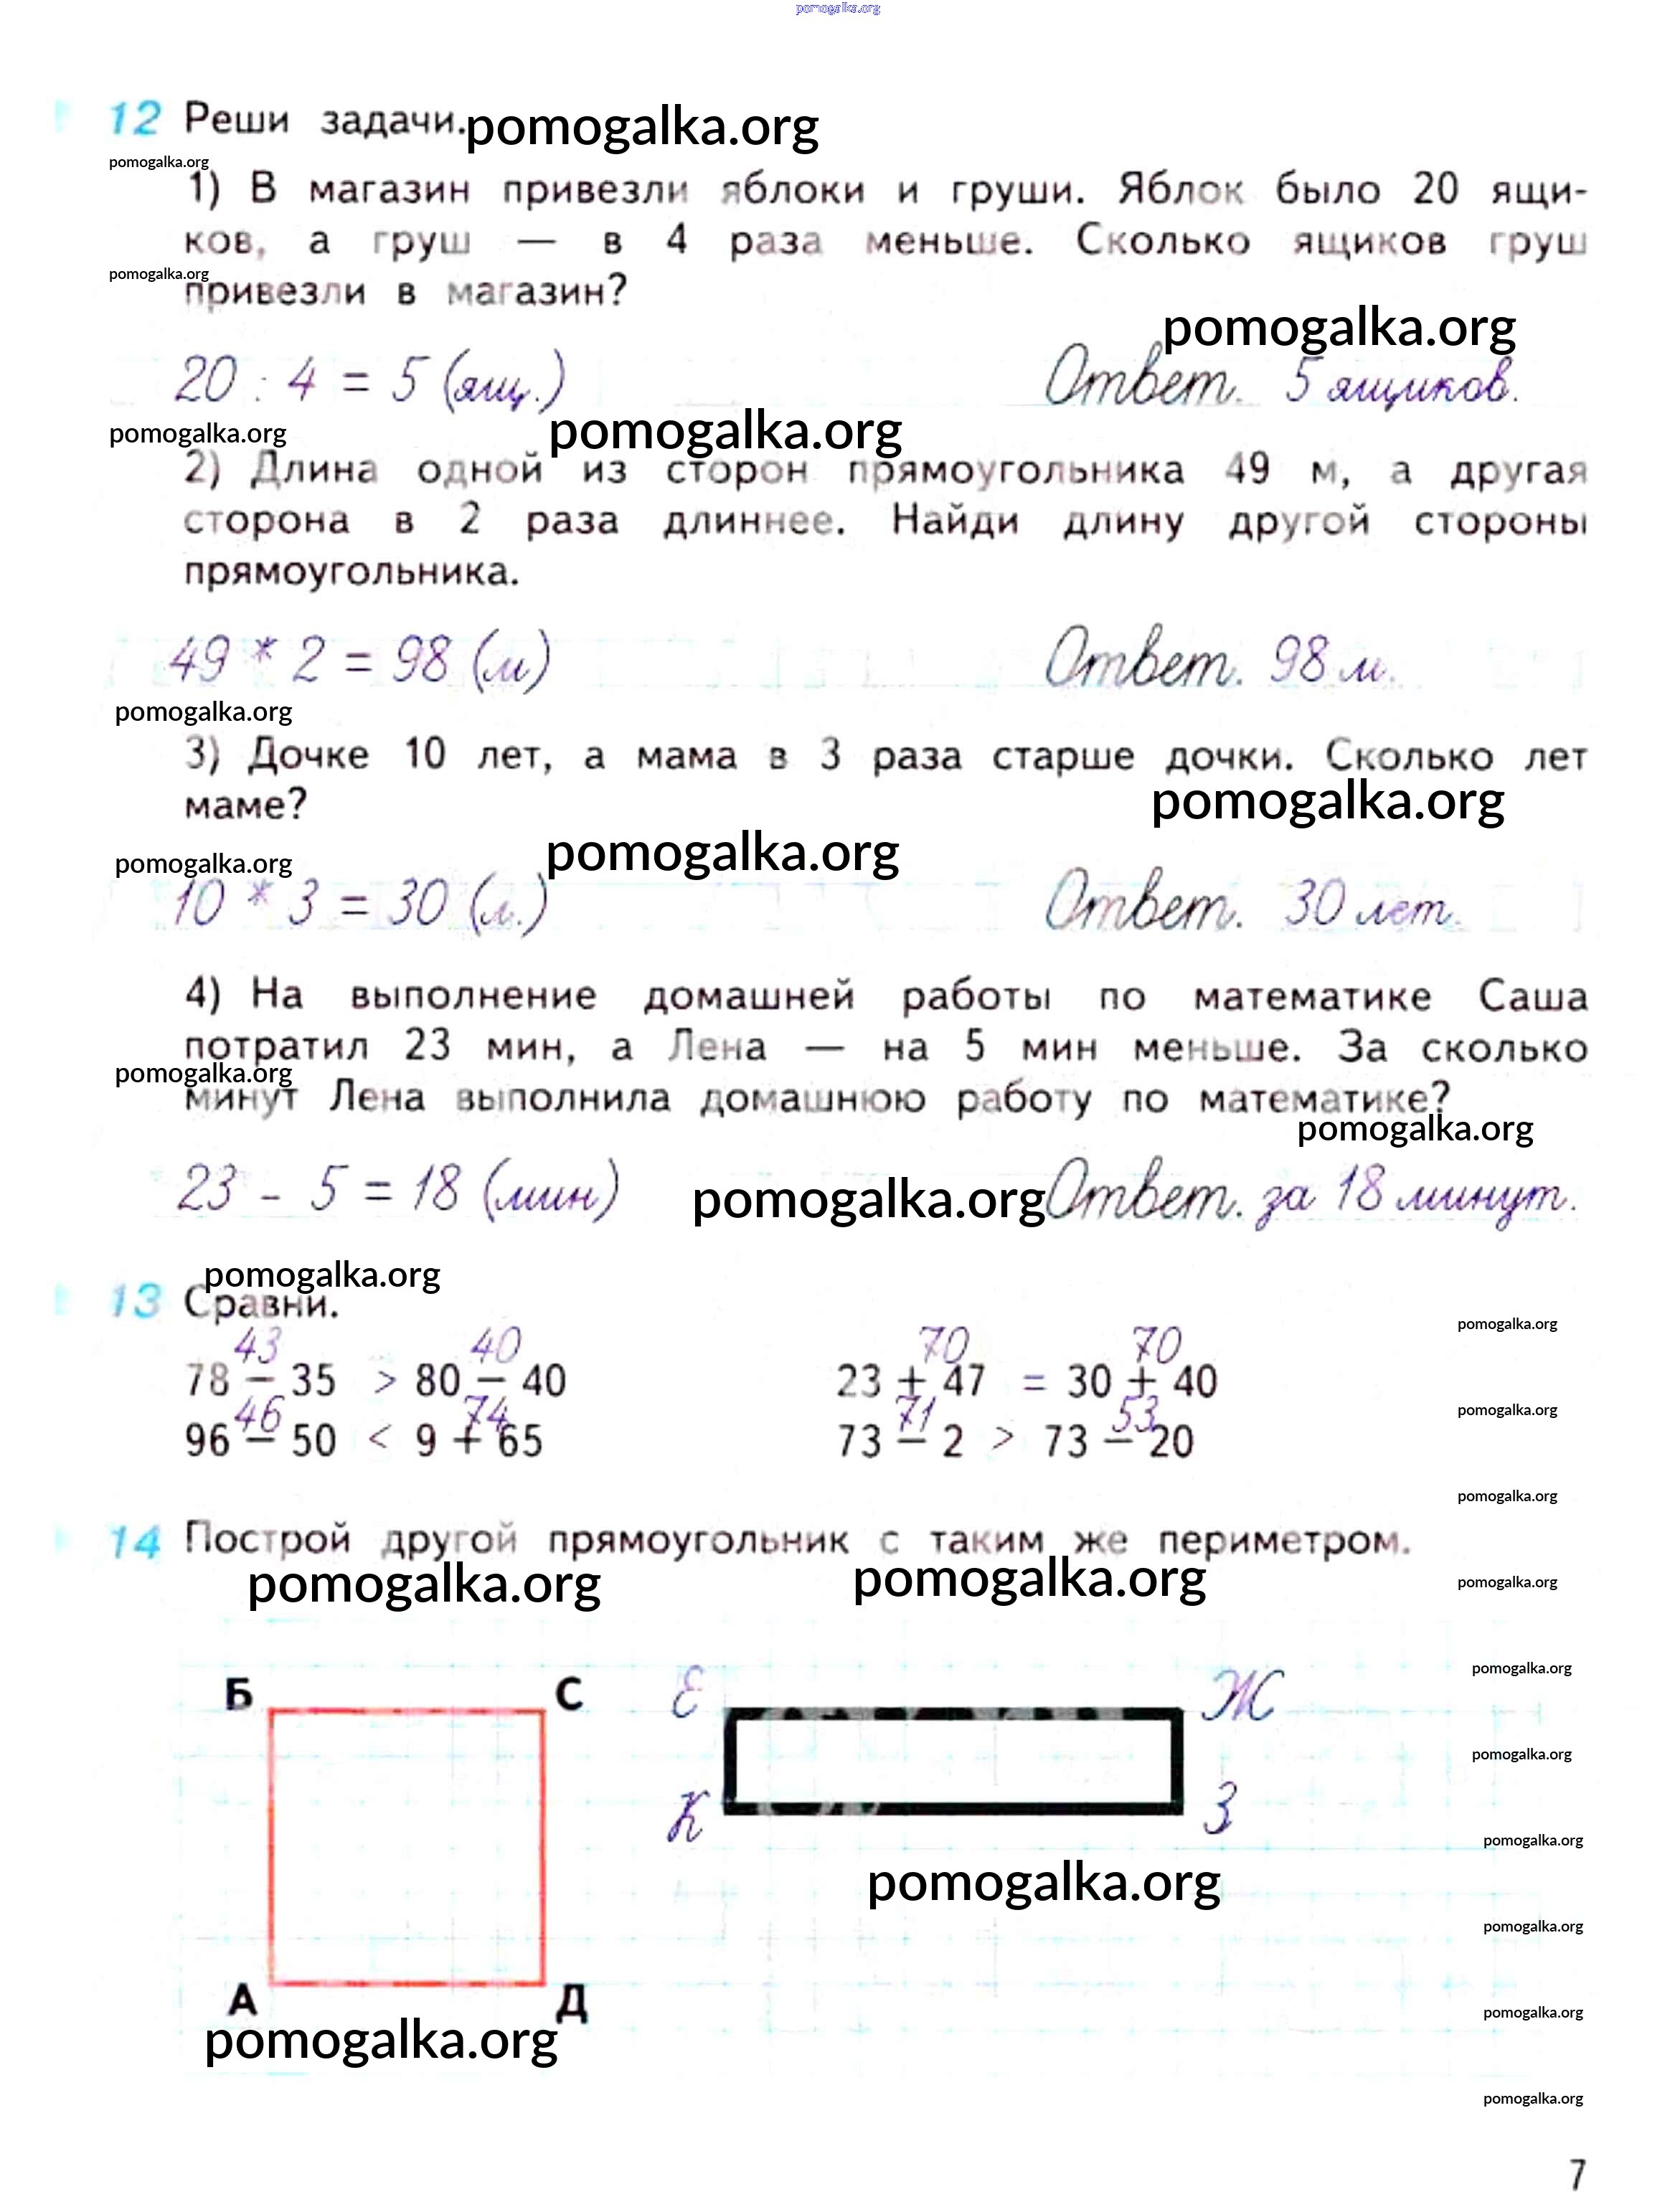 pomogalka.org
12 Реши задачи. pomogalka.org
pomogalka.org
1) В магазин привезли яблоки и груши. Яблок было 20 ящи-
ков, а груш — в 4 раза меньше. Сколько ящиков груш
pomogalka.org
привезли в магазин?
pomogalka.org
20 : 4 = 5 (ящ.) Ответ. 5 ящиков.
pomogalka.org pomogalka.org
2) Длина одной из сторон прямоугольника 49 м, а другая
сторона в 2 раза длиннее. Найди длину другой стороны
прямоугольника.
49 * 2 = 98 (м) Ответ. 98 м.
pomogalka.org
3) Дочке 10 лет, а мама в 3 раза старше дочки. Сколько лет
маме? pomogalka.org
pomogalka.org pomogalka.org
10 * 3 = 30 (л.) Ответ. 30 лет.
4) На выполнение домашней работы по математике Саша
потратил 23 мин, а Лена — на 5 мин меньше. За сколько
pomogalka.org
минут Лена выполнила домашнюю работу по математике?
pomogalka.org
23 - 5 = 18 (мин) pomogalka.org Ответ. за 18 минут.
pomogalka.org
13 Сравни.
pomogalka.org
43 40 70 70
78 − 35 > 80 − 40 23 + 47 = 30 + 40
46 74 71 53
pomogalka.org
96 − 50 < 9 + 65 73 − 2 > 73 − 20
pomogalka.org
14 Построй другой прямоугольник с таким же периметром.
pomogalka.org pomogalka.org pomogalka.org
pomogalka.org
Б С Е Ж
pomogalka.org
К З
pomogalka.org
pomogalka.org
pomogalka.org
А Д
pomogalka.org
pomogalka.org
pomogalka.org
7